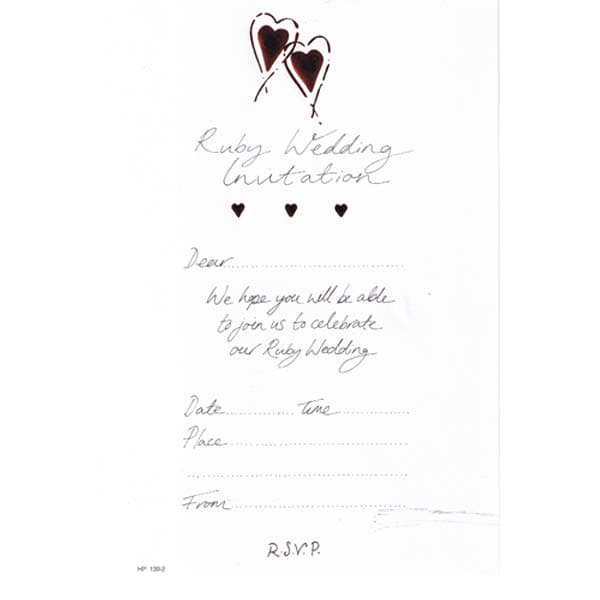 Ruby Wedding
Invitation
Dear
We hope you will be able
to join us to celebrate
our Ruby Wedding
Date Time
Place
From
R.S.V.P.
HP 139-2